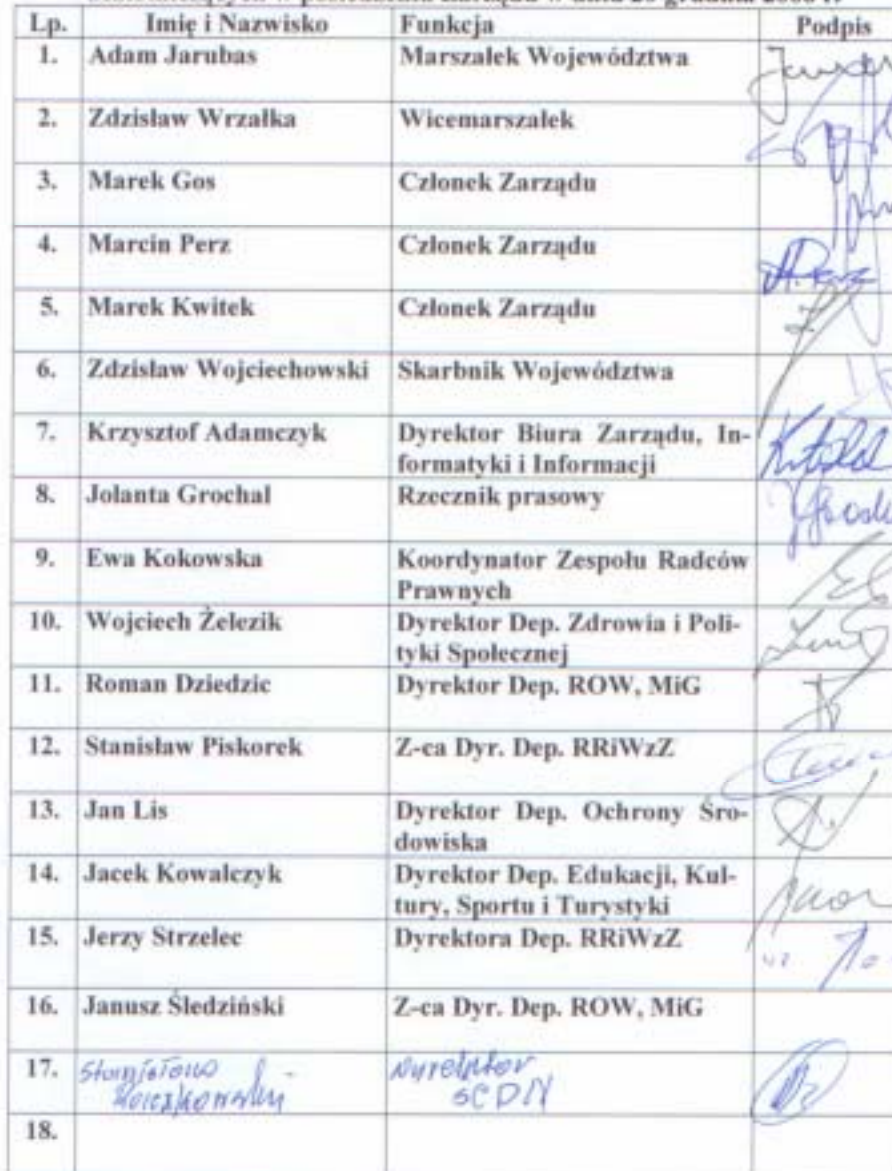 Lp. Imię i Nazwisko Funkcja Podpis
1. Adam Jarubas Marszałek Województwa
2. Zdzisław Wrzałka Wicemarszałek
3. Marek Gos Członek Zarządu
4. Marcin Perz Członek Zarządu
5. Marek Kwitek Członek Zarządu
6. Zdzisław Wojciechowski Skarbnik Województwa
7. Krzysztof Adamczyk Dyrektor Biura Zarządu, In-
formatyki i Informacji
8. Jolanta Grochal Rzecznik prasowy
9. Ewa Kokowska Koordynator Zespołu Radców
Prawnych
10. Wojciech Żelezik Dyrektor Dep. Zdrowia i Poli-
tyki Społecznej
11. Roman Dziedzic Dyrektor Dep. ROW, MiG
12. Stanisław Piskorek Z-ca Dyr. Dep. RRiWzZ
13. Jan Lis Dyrektor Dep. Ochrony Śro-
dowiska
14. Jacek Kowalczyk Dyrektor Dep. Edukacji, Kul-
tury, Sportu i Turystyki
15. Jerzy Strzelec Dyrektora Dep. RRiWzZ
16. Janusz Śledziński Z-ca Dyr. Dep. ROW, MiG
17. Stanisław Dyrektor
SCDN
18.